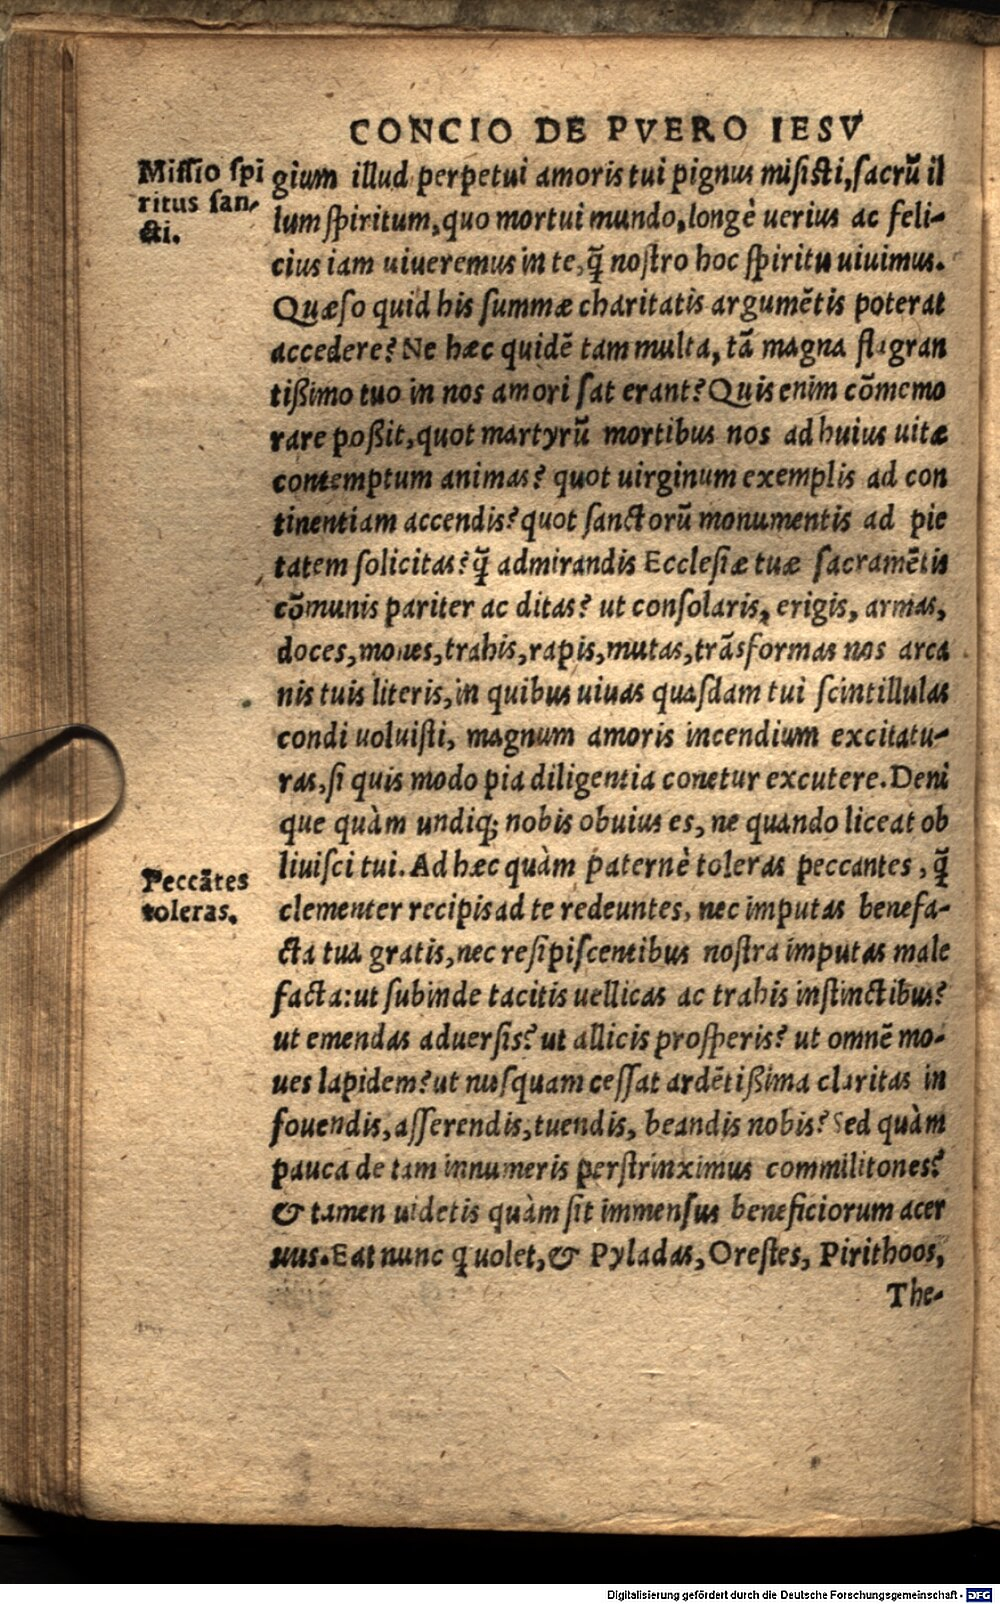 CONCIO DE PVERO IESV
Missio spi
ritus san-
cti.
gium illud perpetui amoris tui pignus misisti, sacrũ il
lum spiritum, quo mortui mundo, longè uerius ac feli-
cius iam uiueremus in te, q̃ nostro hoc spiritu uiuimus.
Quæso quid his summæ charitatis argumẽtis poterat
accedere? Ne hæc quidẽ tam multa, tã magna flagran
tißimo tuo in nos amori sat erant? Quis enim cõmemo
rare poßit, quot martyrũ mortibus nos ad huius uitæ
contemptum animas? quot uirginum exemplis ad con
tinentiam accendis? quot sanctorũ monumentis ad pie
tatem solicitas? q̃ admirandis Ecclesiæ tuæ sacramẽtis
cõmunis pariter ac ditas? ut consolaris, erigis, armas,
doces, mones, trahis, rapis, mutas, trãsformas nos arca
nis tuis literis, in quibus uiuas quasdam tui scintillulas
condi uoluisti, magnum amoris incendium excitatu-
ras, si quis modo pia diligentia conetur excutere. Deni
que quàm undiq; nobis obuius es, ne quando liceat ob
liuisci tui. Ad hæc quàm paternè toleras peccantes, q̃
Peccãtes
toleras.
clementer recipis ad te redeuntes, nec imputas benefa-
cta tua gratis, nec resipiscentibus nostra imputas male
facta: ut subinde tacitis uellicas ac trahis instinctibus?
ut emendas aduersis? ut allicis prosperis? ut omnẽ mo-
ues lapidem? ut nusquam cessat ardẽtißima claritas in
fouendis, asserendis, tuendis, beandis nobis? Sed quàm
pauca de tam innumeris perstrinximus commilitones?
& tamen uidetis quàm sit immensus beneficiorum acer
uus. Eat nunc q uolet, & Pyladas, Orestes, Pirithoos,
The-
Digitalisierung gefördert durch die Deutsche Forschungsgemeinschaft - DFG